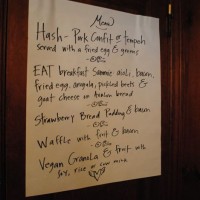 Menu
Hash - Pork Confit or tempeh
served with a fried egg & greens
EAT breakfast Sammie - aioli, bacon,
fried egg, arugula, pickled beets &
goat cheese on Avalon bread
Strawberry Bread Pudding & bacon
Waffle with fruit & bacon
Vegan Granola & fruit with
soy, rice or